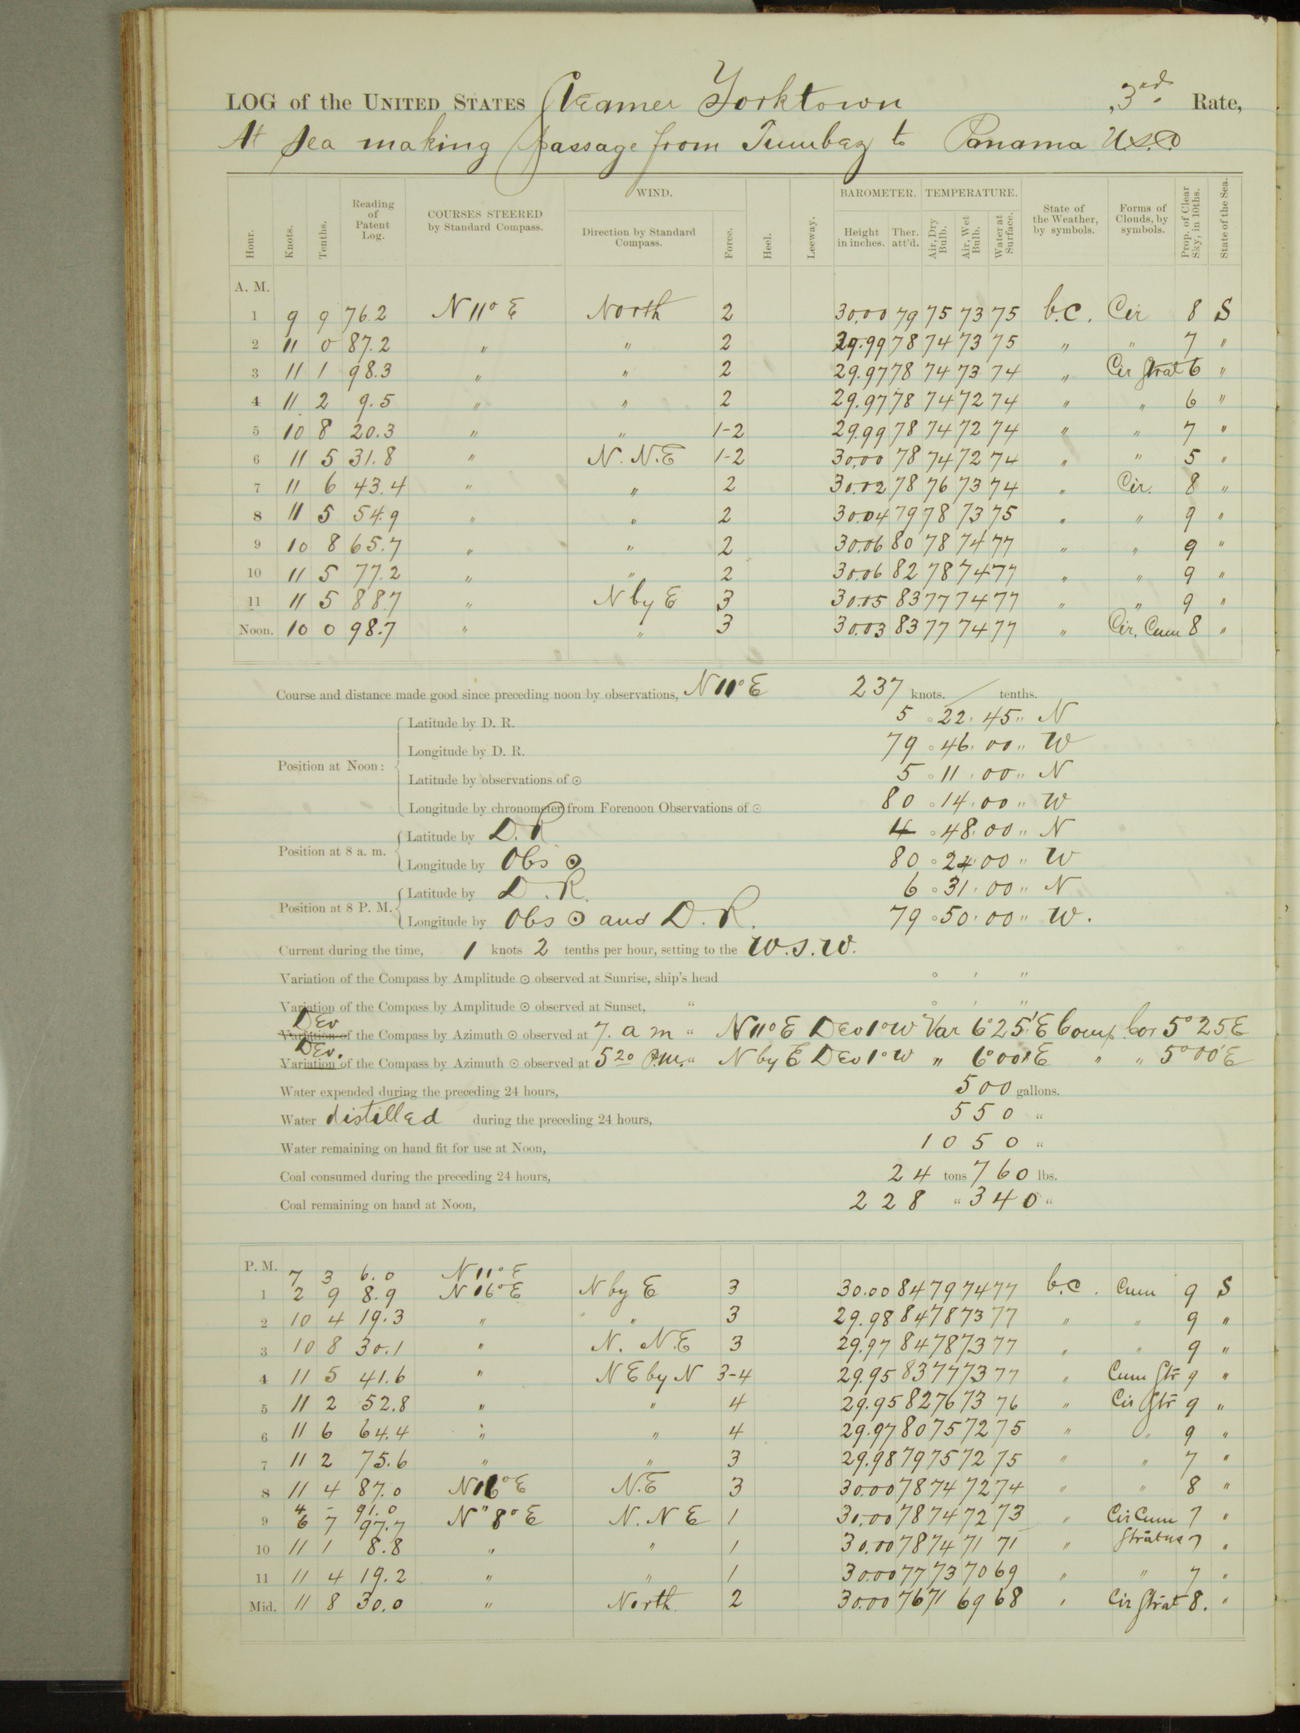 LOG of the UNITED STATES Steamer Yorktown , 3rd Rate,
At Sea making passage from Tumbez to Panama U.S.C.
Hour. Knots. Tenths. Reading of Patent Log. COURSES STEERED by Standard Compass. WIND. Direction by Standard Compass. Force. Heel. Leeway. BAROMETER. Height in inches. Ther. att'd. TEMPERATURE. Air, Dry Bulb. Air, Wet Bulb. Water at Surface. State of the Weather, by symbols. Forms of Clouds, by symbols. Prop. of Clear Sky, in 10ths. State of the Sea.
A. M.
1 9 9 76.2 N 11° E North 2 30.00 79 75 73 75 b.c. Cir 8 S
2 11 0 87.2 " " 2 29.99 78 74 73 75 " " 7 "
3 11 1 98.3 " " 2 29.97 78 74 73 74 " Cir Strat 6 "
4 11 2 9.5 " " 2 29.97 78 74 72 74 " " 6 "
5 10 8 20.3 " " 1-2 29.99 78 74 72 74 " " 7 "
6 11 5 31.8 " N. N.E 1-2 30.00 78 74 72 74 " " 5 "
7 11 6 43.4 " " 2 30.02 78 76 73 74 " Cir. 8 "
8 11 5 54.9 " " 2 30.04 79 78 73 75 " " 9 "
9 10 8 65.7 " " 2 30.06 80 78 74 77 " " 9 "
10 11 5 77.2 " " 2 30.06 82 78 74 77 " " 9 "
11 11 5 88.7 " N by E 3 30.05 83 77 74 77 " " 9 "
Noon. 10 0 98.7 " " 3 30.03 83 77 74 77 " Cir. Cum 8 "
Course and distance made good since preceding noon by observations, N 11° E 237 knots. / tenths.
Position at Noon:
Latitude by D. R. 5 ° 22 ' 45 " N
Longitude by D. R. 79 ° 46 ' 00 " W
Latitude by observations of ☉ 5 ° 11 ' 00 " N
Longitude by chronometer from Forenoon Observations of ☉ 80 ° 14 ' 00 " W
Position at 8 a. m.
Latitude by D. R 4 ° 48 ' 00 " N
Longitude by Obs ☉ 80 ° 24 ' 00 " W
Position at 8 P. M.
Latitude by D. R. 6 ° 31 ' 00 " N
Longitude by Obs ☉ and D. R. 79 ° 50 ' 00 " W.
Current during the time, 1 knots 2 tenths per hour, setting to the W.S.W.
Variation of the Compass by Amplitude ☉ observed at Sunrise, ship's head ° ' "
Variation of the Compass by Amplitude ☉ observed at Sunset, " ° ' "
Dev
Variation of the Compass by Azimuth ☉ observed at 7. a m " N 11° E Dev 1° W Var 6° 25' E Comp. Cor 5° 25 E
Dev.
Variation of the Compass by Azimuth ☉ observed at 5 20 P.M. " N by E Dev 1° W " 6° 00' E " " 5° 00' E
Water expended during the preceding 24 hours, 500 gallons.
Water distilled during the preceding 24 hours, 550 "
Water remaining on hand fit for use at Noon, 1050 "
Coal consumed during the preceding 24 hours, 24 tons 760 lbs.
Coal remaining on hand at Noon, 228 " 340 "
P. M. 7 3 6.0 N 11° E
1 2 9 8.9 N 16° E N by E 3 30.00 84 79 74 77 b.c. Cum 9 S
2 10 4 19.3 " " 3 29.98 84 78 73 77 " " 9 "
3 10 8 30.1 " N. N.E 3 29.97 84 78 73 77 " " 9 "
4 11 5 41.6 " N E by N 3-4 29.95 83 77 73 77 " Cum Str 9 "
5 11 2 52.8 " " 4 29.95 82 76 73 76 " Cir Str 9 "
6 11 6 64.4 " " 4 29.97 80 75 72 75 " " 9 "
7 11 2 75.6 " " 3 29.98 79 75 72 75 " " 7 "
8 11 4 87.0 N 16° E N.E 3 30.00 78 74 72 74 " " 8 "
4 - 91.0
9 6 7 97.7 N " 8° E N. N E 1 30.00 78 74 72 73 " Cir Cum 7 "
10 11 1 8.8 " " 1 30.00 78 74 71 71 " Stratus 7 "
11 11 4 19.2 " " 1 30.00 77 73 70 69 " " 7 "
Mid. 11 8 30.0 " North 2 30.00 76 71 69 68 " Cir Strat 8. "